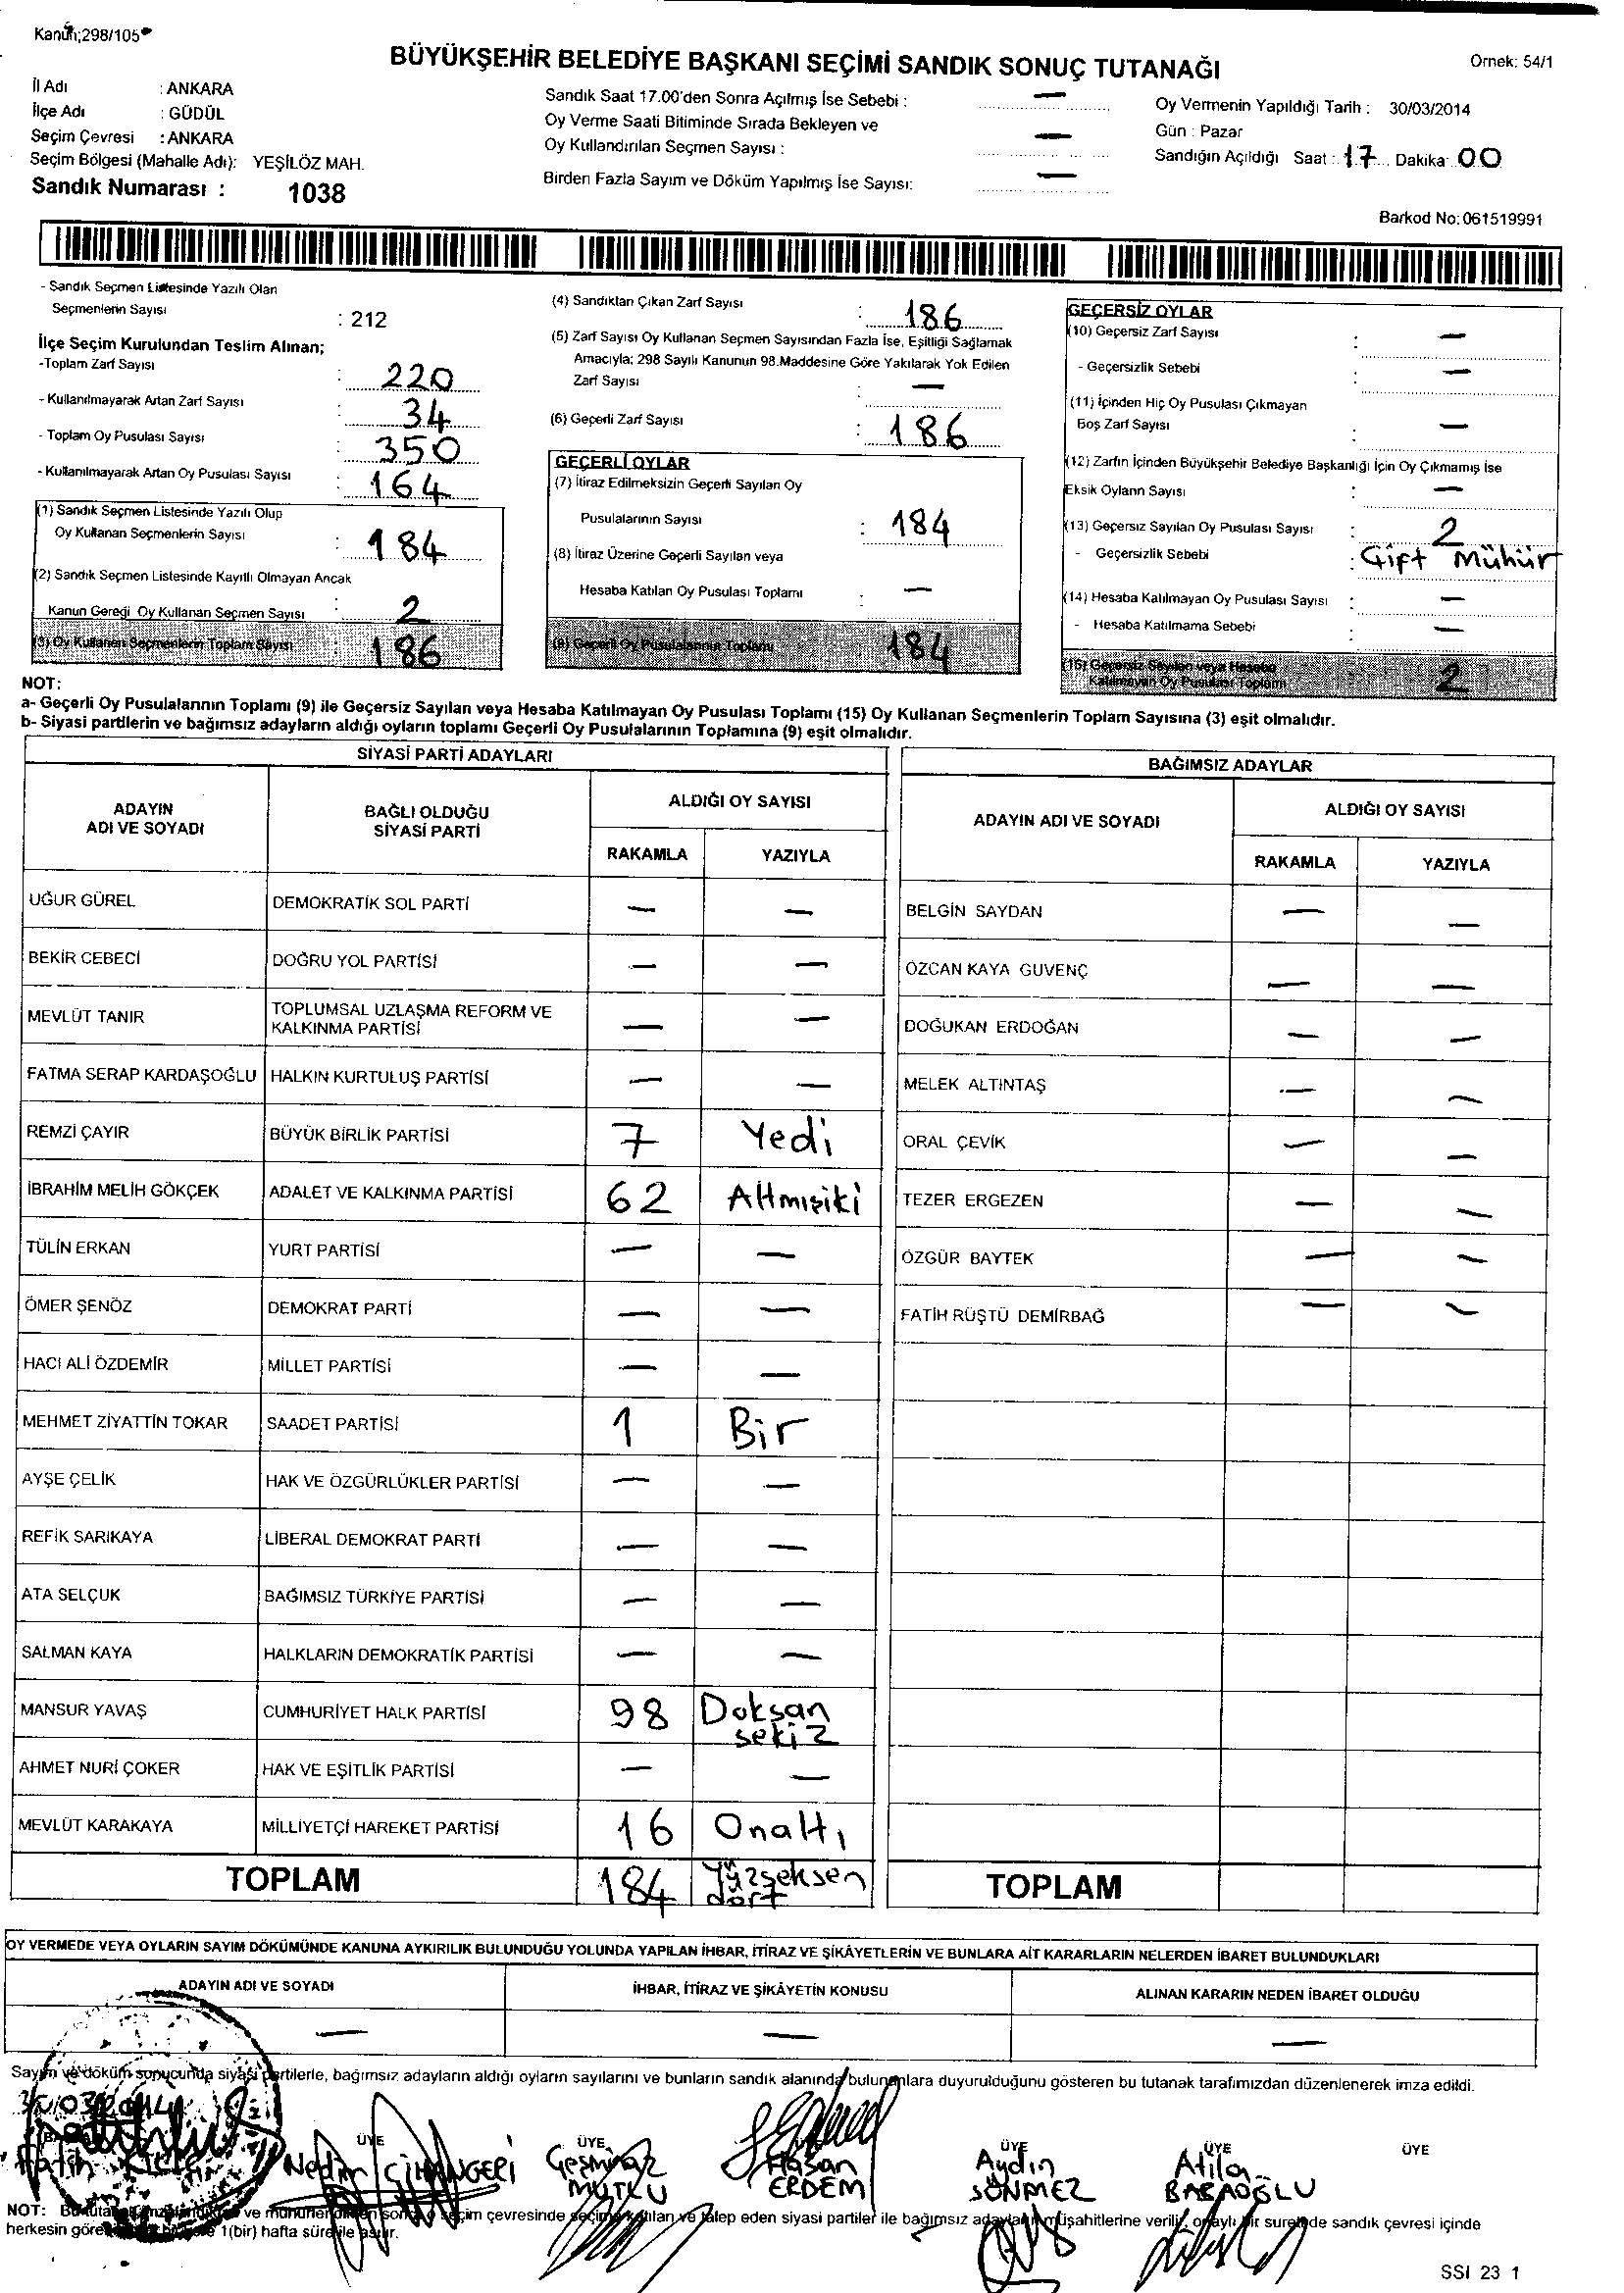 Kanun;298/105
BÜYÜKŞEHİR BELEDİYE BAŞKANI SEÇİMİ SANDIK SONUÇ TUTANAĞI
Ornek: 54/1
İl Adı : ANKARA
İlçe Adı : GÜDÜL
Seçim Çevresi : ANKARA
Seçim Bölgesi (Mahalle Adı): YEŞİLÖZ MAH.
Sandık Numarası : 1038
Sandık Saat 17.00'den Sonra Açılmış İse Sebebi : —
Oy Verme Saati Bitiminde Sırada Bekleyen ve
Oy Kullandırılan Seçmen Sayısı : —
Birden Fazla Sayım ve Döküm Yapılmış İse Sayısı: —
Oy Vermenin Yapıldığı Tarih : 30/03/2014
Gün : Pazar
Sandığın Açıldığı Saat : 17 Dakika 00
Barkod No: 061519991
- Sandık Seçmen Listesinde Yazılı Olan
Seçmenlerin Sayısı : 212
İlçe Seçim Kurulundan Teslim Alınan;
-Toplam Zarf Sayısı : 220
- Kullanılmayarak Artan Zarf Sayısı : 34
- Toplam Oy Pusulası Sayısı : 350
- Kullanılmayarak Artan Oy Pusulası Sayısı : 164
(1) Sandık Seçmen Listesinde Yazılı Olup
Oy Kullanan Seçmenlerin Sayısı : 184
(2) Sandık Seçmen Listesinde Kayıtlı Olmayan Ancak
Kanun Gereği Oy Kullanan Seçmen Sayısı : 2
(3) Oy Kullanan Seçmenlerin Toplam Sayısı : 186
(4) Sandıktan Çıkan Zarf Sayısı : 186
(5) Zarf Sayısı Oy Kullanan Seçmen Sayısından Fazla İse, Eşitliği Sağlamak
Amacıyla; 298 Sayılı Kanunun 98.Maddesine Göre Yakılarak Yok Edilen
Zarf Sayısı : —
(6) Geçerli Zarf Sayısı : 186
GEÇERLİ OYLAR
(7) İtiraz Edilmeksizin Geçerli Sayılan Oy
Pusulalarının Sayısı : 184
(8) İtiraz Üzerine Geçerli Sayılan veya
Hesaba Katılan Oy Pusulası Toplamı : —
(9) Geçerli Oy Pusulalarının Toplamı 184
GEÇERSİZ OYLAR
(10) Geçersiz Zarf Sayısı : —
- Geçersizlik Sebebi : —
(11) İçinden Hiç Oy Pusulası Çıkmayan
Boş Zarf Sayısı : —
(12) Zarfın İçinden Büyükşehir Belediye Başkanlığı İçin Oy Çıkmamış İse
Eksik Oyların Sayısı : —
(13) Geçersiz Sayılan Oy Pusulası Sayısı : 2
- Geçersizlik Sebebi : Çift Mühür
(14) Hesaba Katılmayan Oy Pusulası Sayısı : —
- Hesaba Katılmama Sebebi : —
(15) Geçersiz Sayılan veya Hesaba
Katılmayan Oy Pusulası Toplamı 2
NOT:
a- Geçerli Oy Pusulalarının Toplamı (9) ile Geçersiz Sayılan veya Hesaba Katılmayan Oy Pusulası Toplamı (15) Oy Kullanan Seçmenlerin Toplam Sayısına (3) eşit olmalıdır.
b- Siyasi partilerin ve bağımsız adayların aldığı oyların toplamı Geçerli Oy Pusulalarının Toplamına (9) eşit olmalıdır.
SİYASİ PARTİ ADAYLARI
ADAYIN ADI VE SOYADI BAĞLI OLDUĞU SİYASİ PARTİ ALDIĞI OY SAYISI
RAKAMLA YAZIYLA
UĞUR GÜREL DEMOKRATİK SOL PARTİ — —
BEKİR CEBECİ DOĞRU YOL PARTİSİ — —
MEVLÜT TANIR TOPLUMSAL UZLAŞMA REFORM VE KALKINMA PARTİSİ — —
FATMA SERAP KARDAŞOĞLU HALKIN KURTULUŞ PARTİSİ — —
REMZİ ÇAYIR BÜYÜK BİRLİK PARTİSİ 7 Yedi
İBRAHİM MELİH GÖKÇEK ADALET VE KALKINMA PARTİSİ 62 Altmışiki
TÜLİN ERKAN YURT PARTİSİ — —
ÖMER ŞENÖZ DEMOKRAT PARTİ — —
HACI ALİ ÖZDEMİR MİLLET PARTİSİ — —
MEHMET ZİYATTİN TOKAR SAADET PARTİSİ 1 Bir
AYŞE ÇELİK HAK VE ÖZGÜRLÜKLER PARTİSİ — —
REFİK SARIKAYA LİBERAL DEMOKRAT PARTİ — —
ATA SELÇUK BAĞIMSIZ TÜRKİYE PARTİSİ — —
SALMAN KAYA HALKLARIN DEMOKRATİK PARTİSİ — —
MANSUR YAVAŞ CUMHURİYET HALK PARTİSİ 98 Doksan sekiz
AHMET NURİ ÇOKER HAK VE EŞİTLİK PARTİSİ — —
MEVLÜT KARAKAYA MİLLİYETÇİ HAREKET PARTİSİ 16 Onaltı
TOPLAM 184 Yüzseksen dört
BAĞIMSIZ ADAYLAR
ADAYIN ADI VE SOYADI ALDIĞI OY SAYISI
RAKAMLA YAZIYLA
BELGİN SAYDAN — —
ÖZCAN KAYA GUVENÇ — —
DOĞUKAN ERDOĞAN — —
MELEK ALTINTAŞ — —
ORAL ÇEVİK — —
TEZER ERGEZEN — —
ÖZGÜR BAYTEK — —
FATİH RÜŞTÜ DEMİRBAĞ — —
TOPLAM
OY VERMEDE VEYA OYLARIN SAYIM DÖKÜMÜNDE KANUNA AYKIRILIK BULUNDUĞU YOLUNDA YAPILAN İHBAR, İTİRAZ VE ŞİKÂYETLERİN VE BUNLARA AİT KARARLARIN NELERDEN İBARET BULUNDUKLARI
ADAYIN ADI VE SOYADI İHBAR, İTİRAZ VE ŞİKÂYETİN KONUSU ALINAN KARARIN NEDEN İBARET OLDUĞU
— — —
Sayım ve döküm sonucunda siyasi partilerle, bağımsız adayların aldığı oyların sayılarını ve bunların sandık alanında bulunanlara duyurulduğunu gösteren bu tutanak tarafımızdan düzenlenerek imza edildi.
30/03/2014
ÜYE ÜYE ÜYE ÜYE ÜYE
Fatih Nedim CİHANGERİ Çeşminaz MUTLU Hasan ERDEM Aydın SÖNMEZ Atila BABAOĞLU
NOT: ve mühürlendikten sonra, o seçim çevresinde seçime katılan ve talep eden siyasi partiler ile bağımsız adayların müşahitlerine verilir, onaylı bir suret de sandık çevresi içinde
herkesin göre 1(bir) hafta süre ile asılır.
SSI 23 1